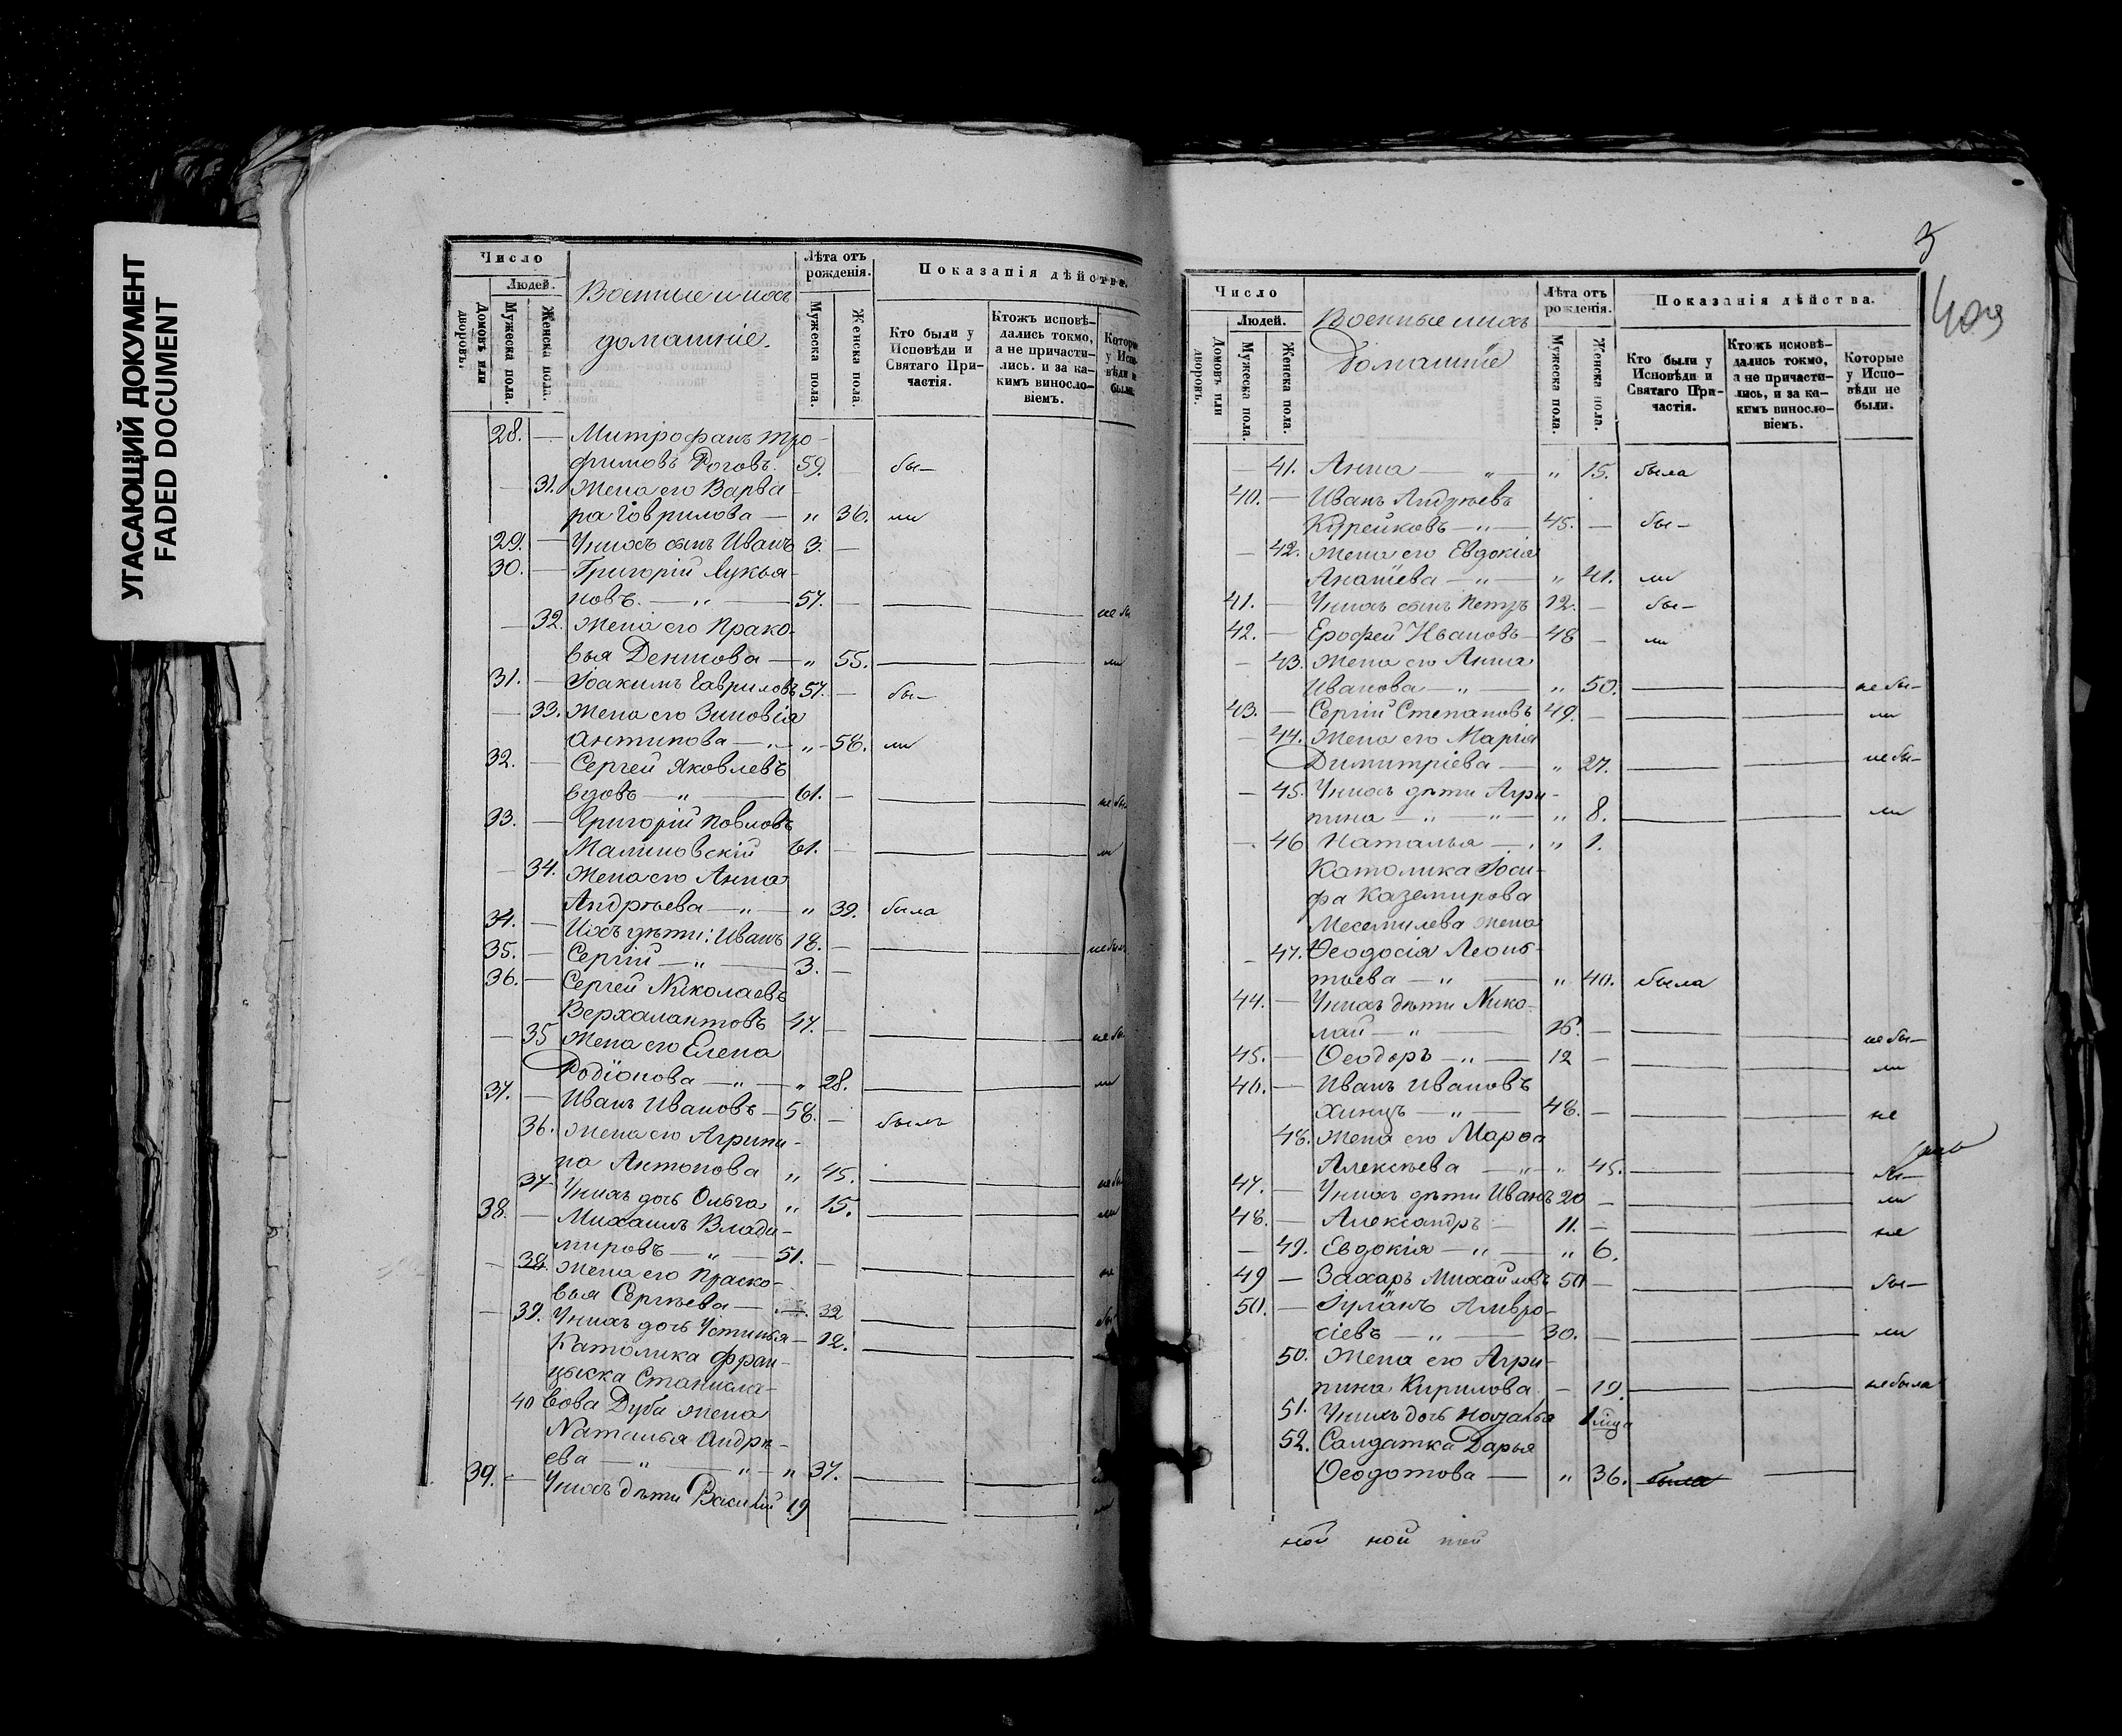 УГАСАЮЩИЙ ДОКУМЕНТ
FADED DOCUMENT
Число
Людей.
Домовъ или дворовъ.
Мужеска пола.
Женска пола.
Военные и ихъ
домашніе.
Лѣта отъ рожденія.
Мужеска пола.
Женска пола.
Показанія дѣйства.
Кто были у Исповѣди и Святаго Причастія.
Ктожъ исповѣдались токмо, а не причастились. и за какимъ винословіемъ.
28. — Митрофанъ Тро-
фимовъ Роговъ. 59. — бы—
— 31. Жена его Варва-
ра Гаврилова — „ 36. ли
29. — У нихъ сынъ Иванъ 3. —
30. — Григорій Лукья-
новъ. — „ — 57. — не бы
— 32. Жена его Праско-
вья Денисова — „ 55. ли
31. — Іоакимъ Гавриловъ 57. — бы—
— 33. Жена его Зиновія
Антипова — „ — „ 58. ли
32. — Сергей Яковлевъ
вдовъ — „ — 61. — не бы
33. — Григорій Павловъ
Малиновскій 61. — ли
— 34. Жена его Анна
Андрѣева — „ — „ 39. была
34. — Ихъ дѣти: Иванъ 18. — не былъ
35. — Сергій — „ — 3. —
36. — Сергей Николаевъ
Верхалантовъ 47. — не бы
— 35 Жена его Елена
Родіонова — „ — „ 28. ли
37. — Иванъ Ивановъ — 58. — былъ
36. Жена его Агрипи-
на Антонова „ 45. не бы
37 У нихъ дочь Ольга „ 15. ли
38. — Михаилъ Влади-
мировъ — „ — 51. — не
— 38. Жена его Праско-
вья Сергѣева — 32 бы
— 39. У нихъ дочь Устинья — 12.
Католика Фран-
цыска Станисла-
40 вова Дуба жена
Наталья Андрѣ-
ева — „ — „ — „ 37.
39. — У нихъ дѣти Василій 19 ли
5
409
Число
Людей.
Домовъ или дворовъ.
Мужеска пола.
Женска пола.
Военные и ихъ
домашніе
Лѣта отъ рожденія.
Мужеска пола.
Женска пола.
Показанія дѣйства.
Кто были у Исповѣди и Святаго Причастія.
Ктожъ исповѣдались токмо, а не причастились, и за какимъ винословіемъ.
Которые у Исповѣди не были.
— 41. Анна — „ — „ 15. была
40. — Иванъ Андреевъ
— „ — 45. — бы—
— 42. Жена его Евдокія
Ананіева — „ — „ 41. ли
41. — У нихъ сынъ Петръ 12. — бы—
42. — Ерофей Ивановъ — 48 — ли
— 43. Жена его Анна
Иванова — „ — „ 50. не бы—
43. — Сергій Степановъ 49. — ли
— 44. Жена его Марія
Димитріева — „ 27. не бы—
— 45. У нихъ дѣти Агри-
пина — „ — „ — „ 8. ли
— 46 Наталья — „ 1.
Католика Іоси-
фа Каземирова
жена
— 47. Ѳеодосія Леонть-
тьева — „ — „ 40. была
44. — У нихъ дѣти Нико-
лай — „ — 16. — не бы—
45. — Ѳеодоръ — „ — 12 — ли
40. — Иванъ Ивановъ
— „ — 48. — не
48. Жена его Марѳа
Алексѣева — „ — „ 45. бы—
47. — У нихъ дѣти Иванъ 20 — ли
48. — Александръ — 11. — не
— 49. Евдокія — „ — „ 6.
49 — Захаръ Михайловъ 50 — бы—
50. — Іуліанъ Амвро-
сіевъ — „ — 30. — ли
50. Жена его Агри-
пина Кирилова — 19. не была
51. У нихъ дочь Наталья 1 мца
52. Салдатка Дарья
Ѳеодотова — „ 36. была
ной ной